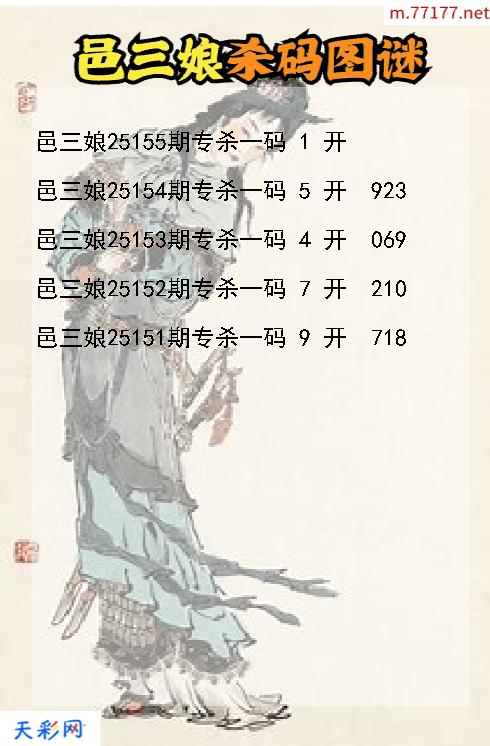 m.77177.net
邑三娘杀码图谜
邑三娘25155期专杀一码 1 开
邑三娘25154期专杀一码 5 开 923
邑三娘25153期专杀一码 4 开 069
邑三娘25152期专杀一码 7 开 210
邑三娘25151期专杀一码 9 开 718
天彩网